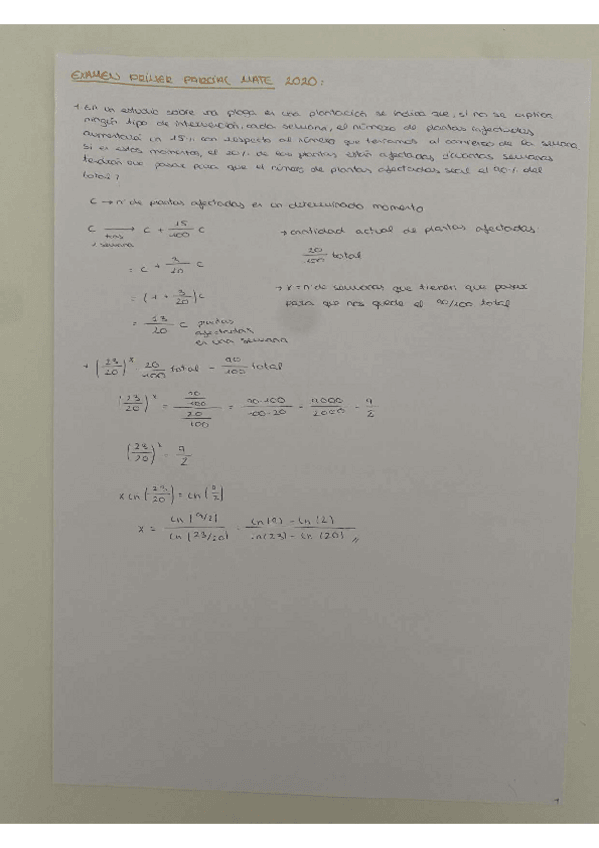 EXAMEN PRIMER PARCIAL MATE 2020:
1. En un estudio sobre una plaga en una plantación se indica que, si no se aplica
ningún tipo de intervención, cada semana, el número de plantas afectadas
aumentará un 15% con respecto al número que teníamos al comienzo de la semana
si en estos momentos, el 20% de las plantas están afectadas, ¿cuántas semanas
tendrán que pasar para que el número de plantas afectadas sea el 90% del
total?
C → nº de plantas afectadas en un determinado momento
C → tras 1 semana C + 15/100 C
→ cantidad actual de plantas afectadas:
= C + 3/20 C
20/100 total
= (1 + 3/20) C
→ x = nº de semanas que tienen que pasar
para que nos quede el 90/100 total
= 23/20 C plantas
afectadas
en una semana
→ (23/20)^x · 20/100 total = 90/100 total
(23/20)^x = (90/100)/(20/100) = 90·100/100·20 = 9000/2000 = 9/2
(23/20)^x = 9/2
x ln(23/20) = ln(9/2)
x = ln(9/2)/ln(23/20) = ln(9) - ln(2)/ln(23) - ln(20) //
1